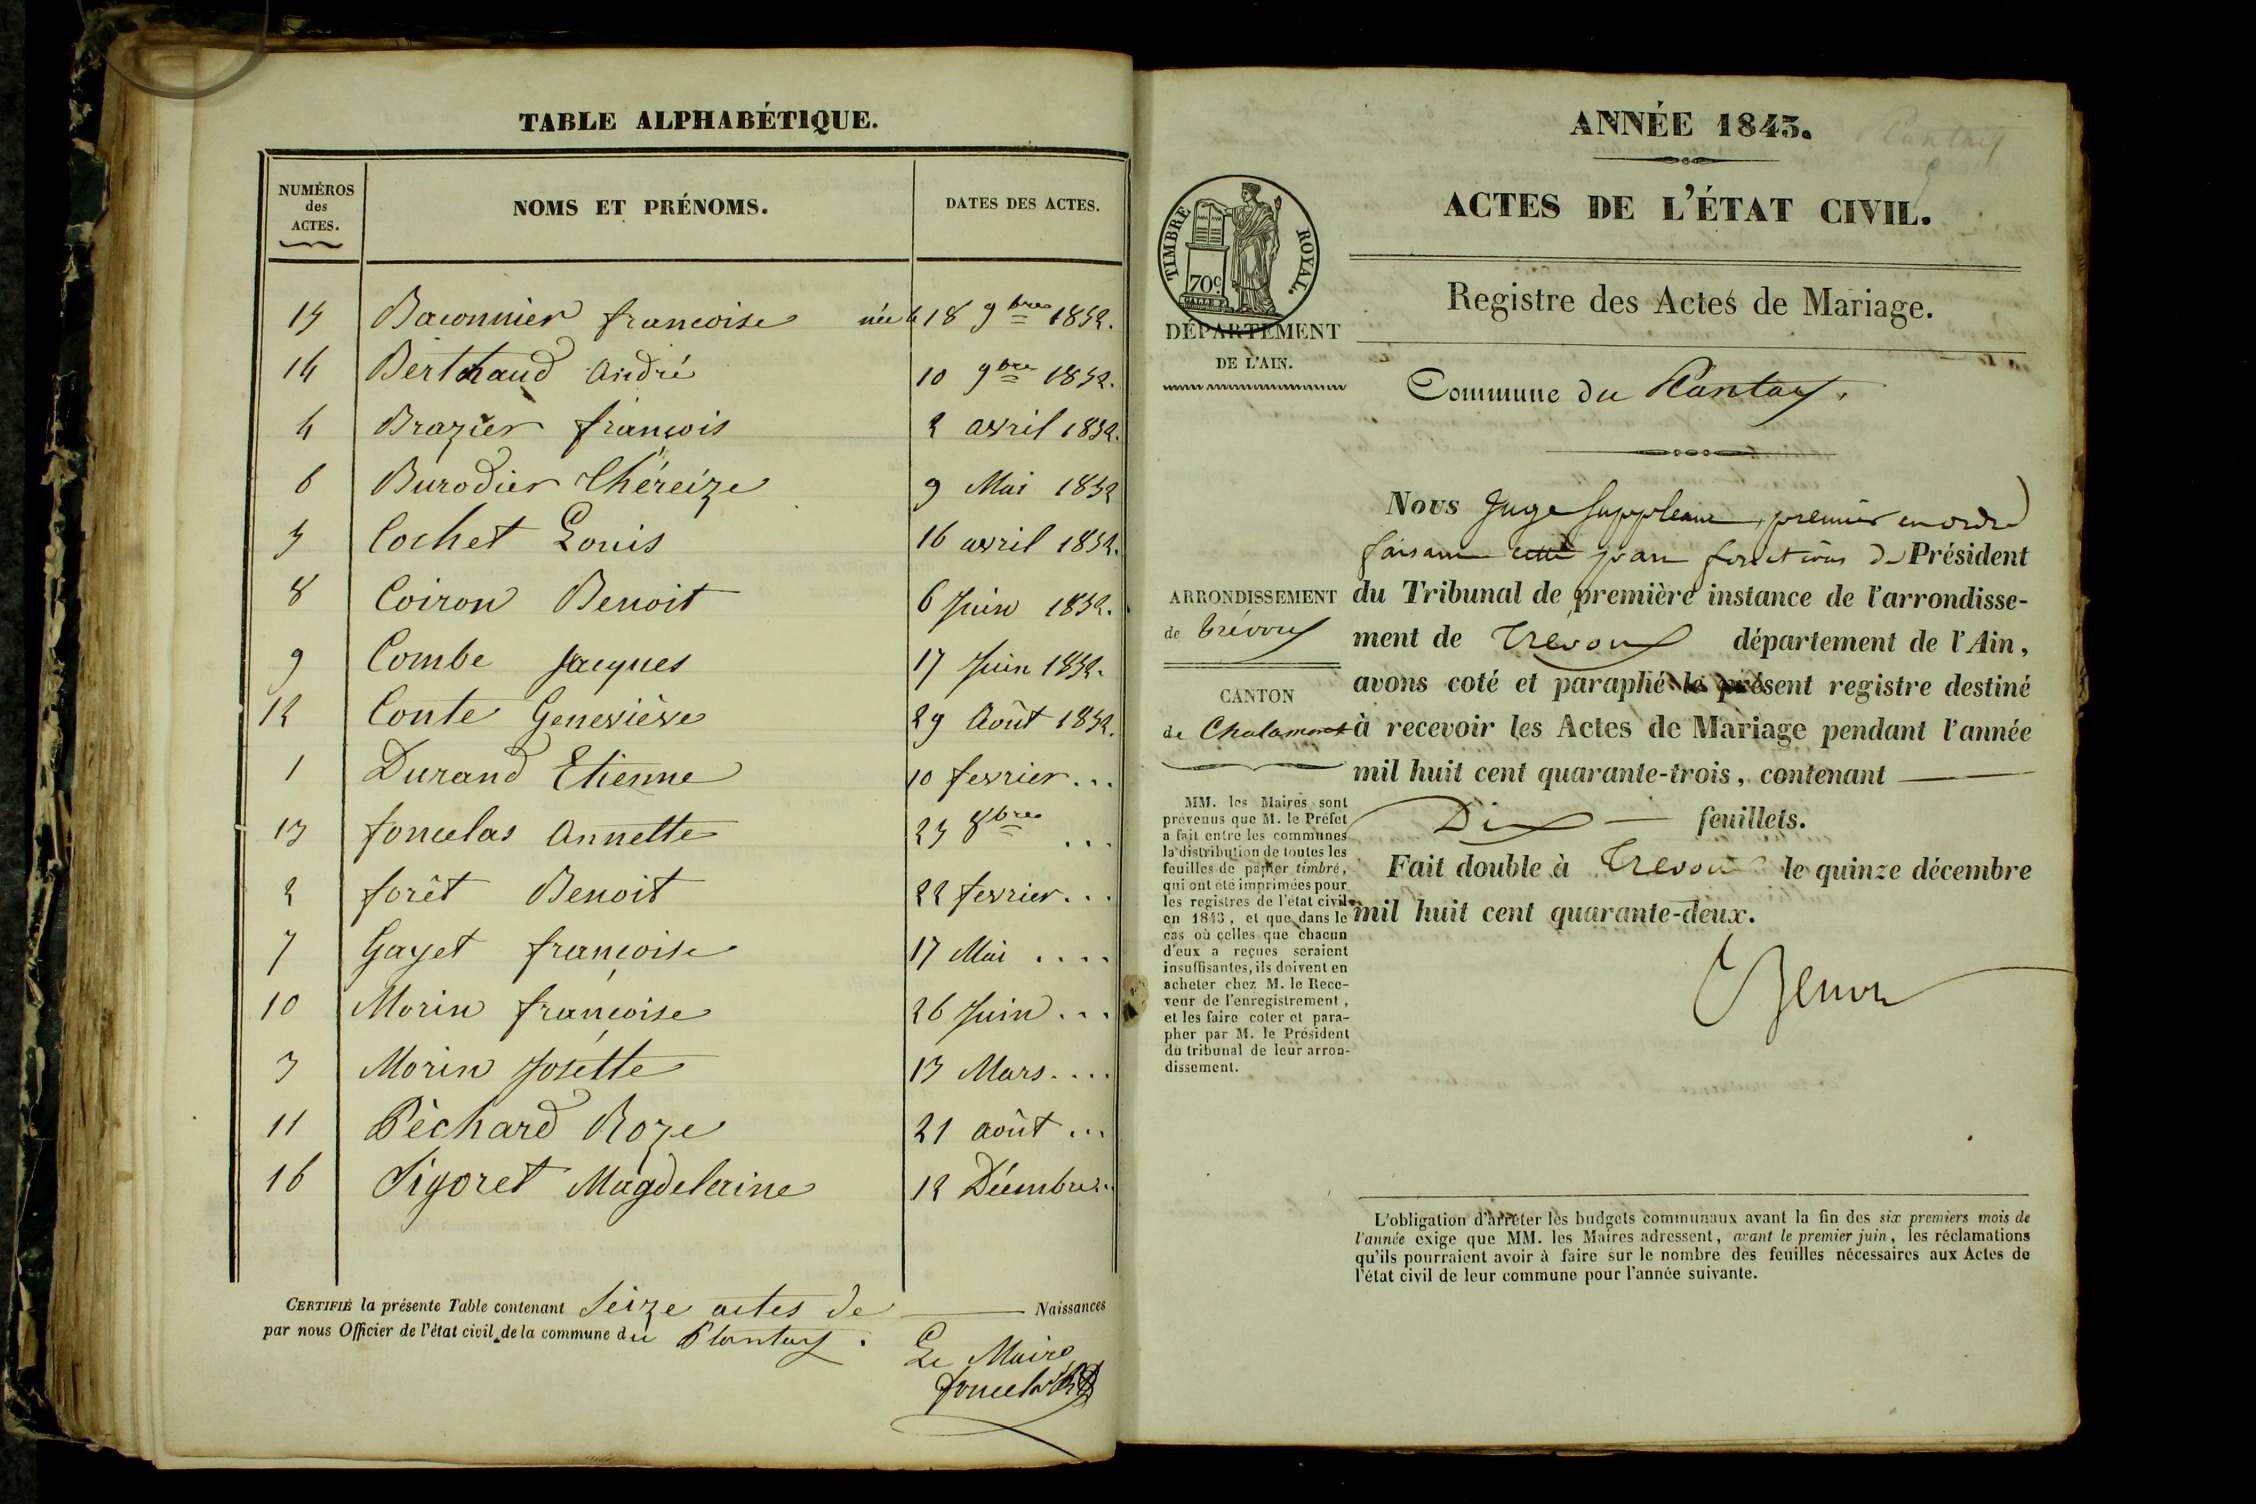 TABLE ALPHABÉTIQUE.
NUMÉROS des ACTES. NOMS ET PRÉNOMS. DATES DES ACTES.
15 Baconnier françoise née le 18 9bre 1842.
14 Berthaud André 10 9bre 1842.
4 Brazier françois 2 avril 1842.
6 Burodier Théreize 9 Mai 1842
5 Cochet Louis 16 avril 1842.
8 Coiron Benoit 6 Juin 1842.
9 Combe Jacques 17 Juin 1842.
12 Conte Geneviève 29 Août 1842.
1 Durand Etienne 10 fevrier...
13 foncelas Annette 25 8bre ...
2 forêt Benoit 22 fevrier...
7 Gayet françoise 17 Mai ....
10 Morin françoise 26 Juin...
3 Morin Josette 13 Mars....
11 Péchard Roze 21 août...
16 Sigoret Magdelaine 12 Décembre..
CERTIFIÉ la présente Table contenant Seize actes de Naissances
par nous Officier de l'état civil de la commune du Plantay.
Le Maire
ANNÉE 1843.
Plantay
ACTES DE L'ÉTAT CIVIL.
TIMBRE ROYAL.
70c
Registre des Actes de Mariage.
DÉPARTEMENT
DE L'AIN.
Commune du Plantay.
ARRONDISSEMENT
de Trévoux
CANTON
de Chalamont
MM. les Maires sont
prévenus que M. le Préfet
a fait entre les communes
la distribution de toutes les
feuilles de papier timbré,
qui ont été imprimées pour
les registres de l'état civil
en 1843, et que dans le
cas où celles que chacun
d'eux a reçues seraient
insuffisantes, ils doivent en
acheter chez M. le Rece-
veur de l'enregistrement,
et les faire coter et para-
pher par M. le Président
du tribunal de leur arron-
dissement.
Nous Juge Suppléant, premier en ordre
faisant fonctions de Président
du Tribunal de première instance de l'arrondisse-
ment de Trévoux département de l'Ain,
avons coté et paraphé le présent registre destiné
à recevoir les Actes de Mariage pendant l'année
mil huit cent quarante-trois, contenant
Dix feuillets.
Fait double à Trévoux le quinze décembre
mil huit cent quarante-deux.
L'obligation d'arrêter les budgets communaux avant la fin des six premiers mois de
l'année exige que MM. les Maires adressent, avant le premier juin, les réclamations
qu'ils pourraient avoir à faire sur le nombre des feuilles nécessaires aux Actes de
l'état civil de leur commune pour l'année suivante.